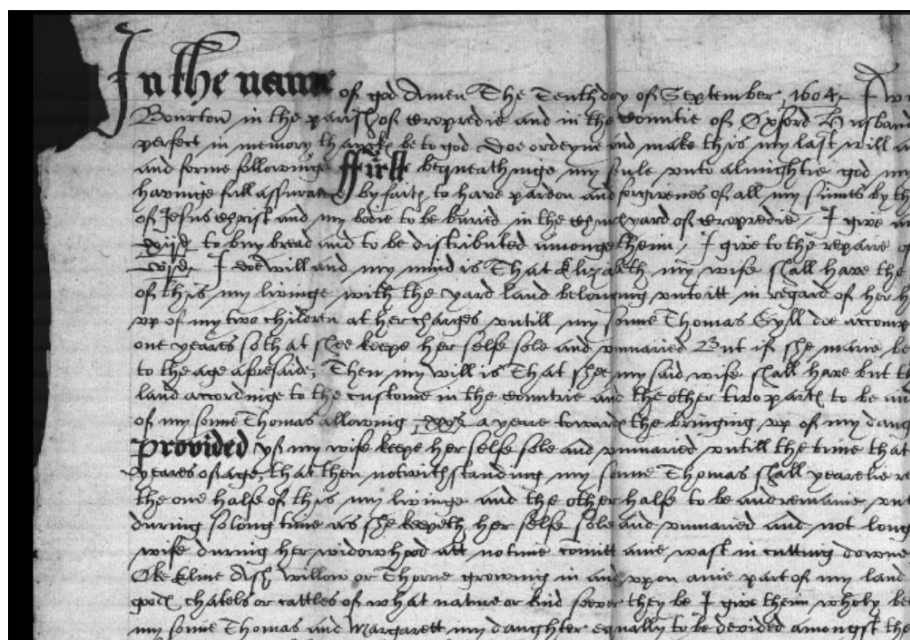 In the name of god Amen The Tenth day of September 1604 I
Bourton in the parish of Cropredie and in the Countie of Oxford Husband
perfect in memory thanks be to god doe ordeyne and make this my last will a
and forme followinge ffirst bequeathinge my sule unto almightie god my
havinge full assurance by faith to have pardon and forgivenes of all my sinns by th
of Jesus Christ and my bodie to be buried in the Churchyard of Cropredie, I give
to buy bread and to be distributed amonge them, I give to the repaire
I doe will and my mind is That Elizabeth my wife shall have the
of this my livinge with the yard land belonging unto itt in regard of her
up of my two children at her charges untill my sonne Thomas Gyll doe accomp
one yeares so that shee keepe her selfe sole and unmaried But if she marie be
to the age aforesaide, Then my will is That shee my said wife shall have but th
land accordinge to the custome in the countrie and the other two parts to be
of my sonne Thomas allowing xxs a yeare towards the bringing up of my daug
Provided yf my wife keepe her selfe sole and unmaried untill the time that
yeares of age, that then notwithstanding my sonne Thomas shall yearelie
the one halfe of this my livinge and the other halfe to be and remaine unt
during so long time as she keepeth her selfe sole and unmaried and not long
wife during her widowhood att no time comitt anie wast in cutting downe
Oke Elme Ash Willow or Thorne growing in and upon anie part of my land
goods chatels or cattles of what nature or kind soever they be I give them wholy be
my sonne Thomas and Margarett my daughter equally to be devided amongst the